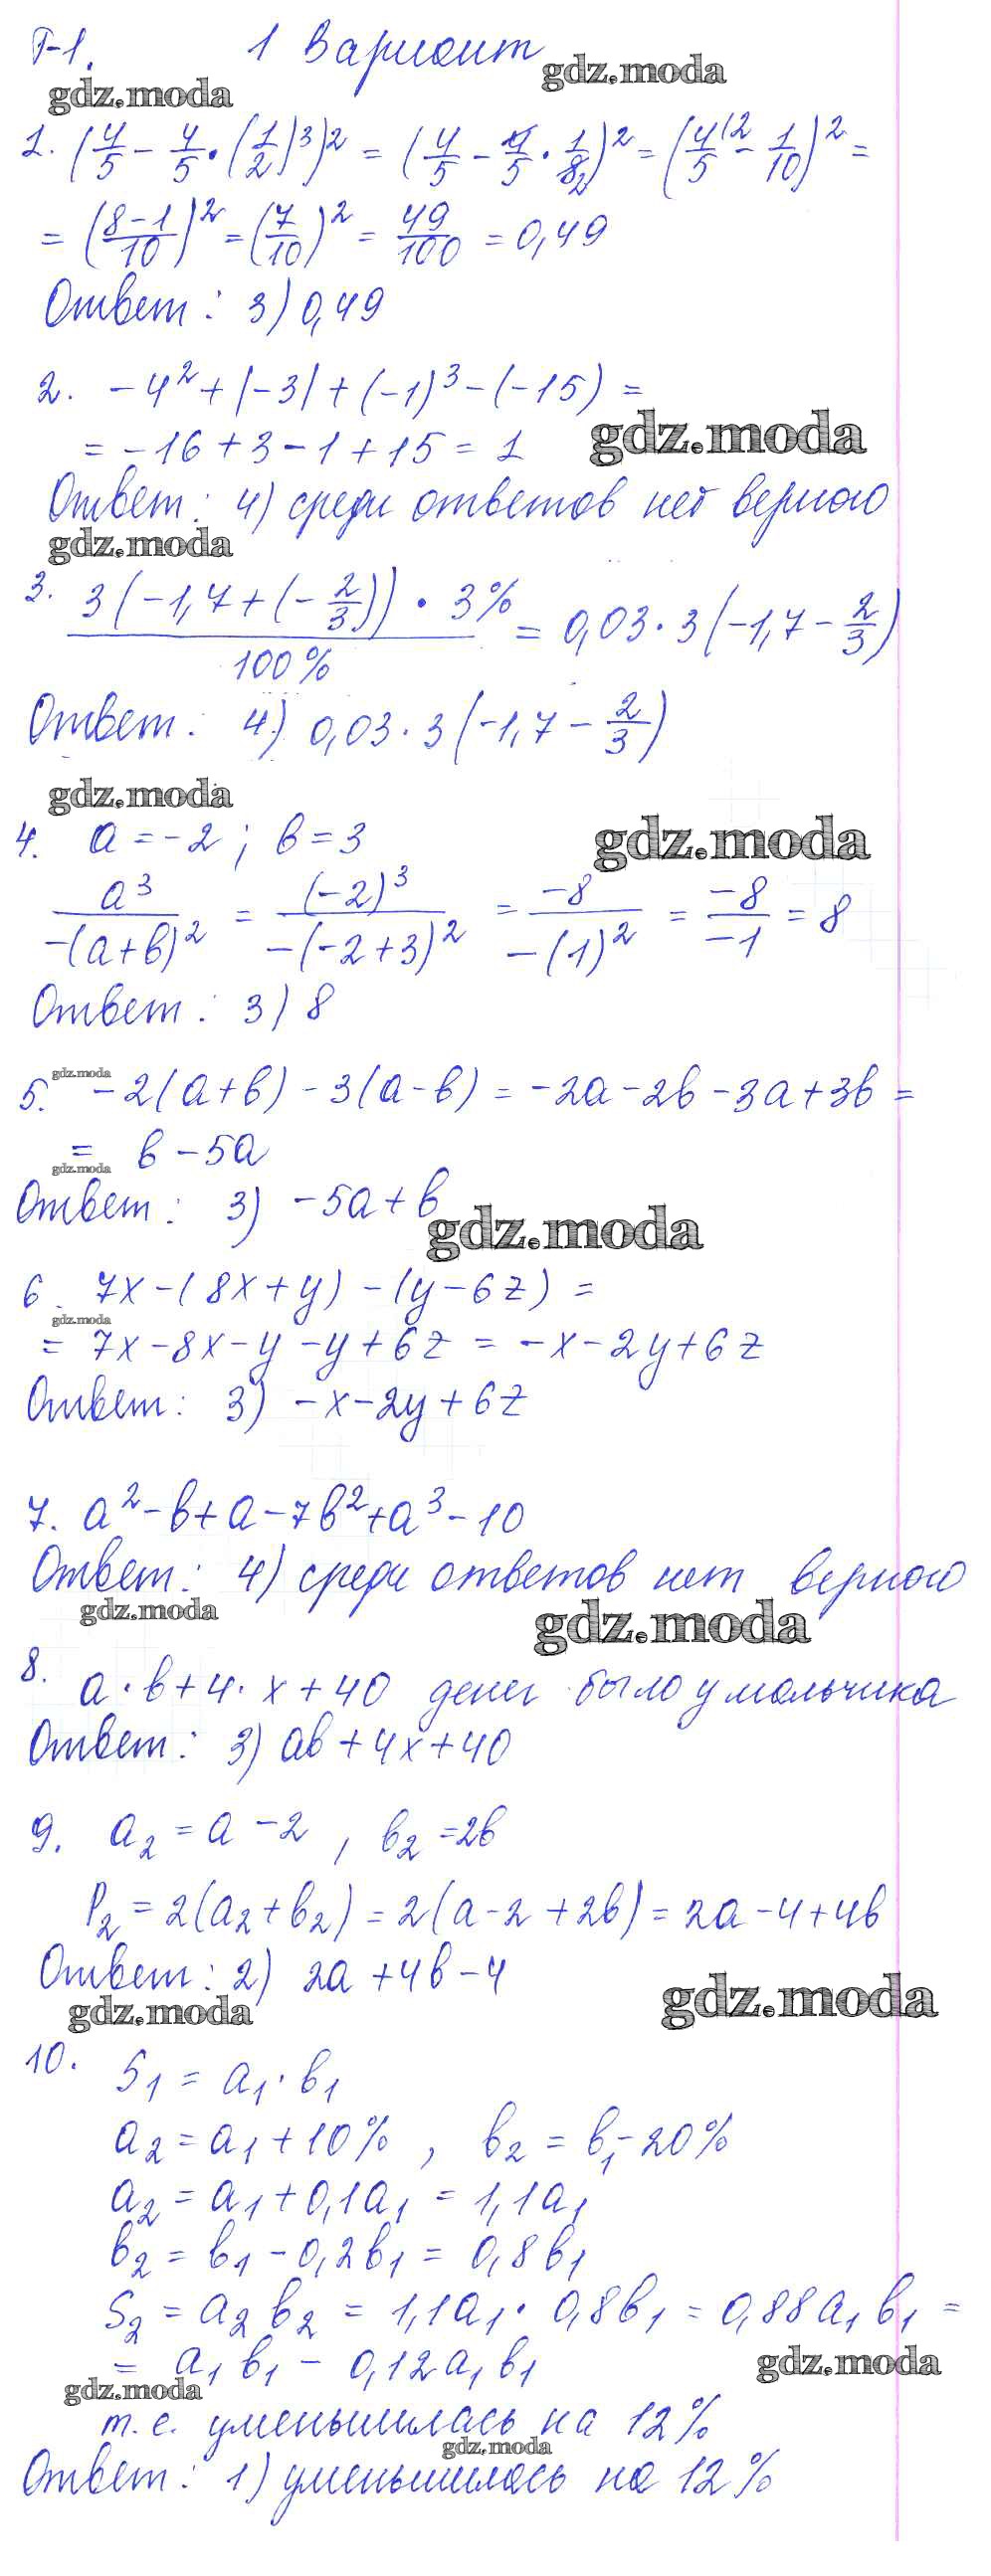 Т-1. 1 Вариант
gdz.moda gdz.moda
1. (4/5 - 4/5 · (1/2)³)² = (4/5 - 4/5 · 1/8₂)² = (4/5^(2 - 1/10)² =
= ((8-1)/10)² = (7/10)² = 49/100 = 0,49
Ответ: 3) 0,49
2. -4² + |-3| + (-1)³ - (-15) =
= -16 + 3 - 1 + 15 = 1
gdz.moda
Ответ: 4) среди ответов нет верного
gdz.moda
3. 3(-1,7 + (-2/3)) · 3% / 100% = 0,03 · 3(-1,7 - 2/3)
Ответ: 4) 0,03 · 3(-1,7 - 2/3)
gdz.moda
4. a = -2; b = 3
gdz.moda
a³/-(a+b)² = (-2)³/-(-2+3)² = -8/-(1)² = -8/-1 = 8
Ответ: 3) 8
gdz.moda
5. -2(a+b) - 3(a-b) = -2a - 2b - 3a + 3b =
= b - 5a
gdz.moda
Ответ: 3) -5a + b
gdz.moda
6. 7x - (8x+y) - (y-6z) =
gdz.moda
= 7x - 8x - y - y + 6z = -x - 2y + 6z
Ответ: 3) -x - 2y + 6z
7. a² - b + a - 7b² + a³ - 10
Ответ: 4) среди ответов нет верного
gdz.moda gdz.moda
8. a · b + 4 · x + 40 денег было у мальчика
Ответ: 3) ab + 4x + 40
9. a₂ = a - 2, b₂ = 2b
P₂ = 2(a₂ + b₂) = 2(a - 2 + 2b) = 2a - 4 + 4b
Ответ: 2) 2a + 4b - 4
gdz.moda gdz.moda
10. S₁ = a₁ · b₁
a₂ = a₁ + 10%, b₂ = b₁ - 20%
a₂ = a₁ + 0,1a₁ = 1,1a₁
b₂ = b₁ - 0,2b₁ = 0,8b₁
S₂ = a₂ b₂ = 1,1a₁ · 0,8b₁ = 0,88a₁ b₁ =
= a₁ b₁ - 0,12a₁ b₁
gdz.moda gdz.moda
т.е. уменьшилась на 12%
gdz.moda
Ответ: 1) уменьшилась на 12%